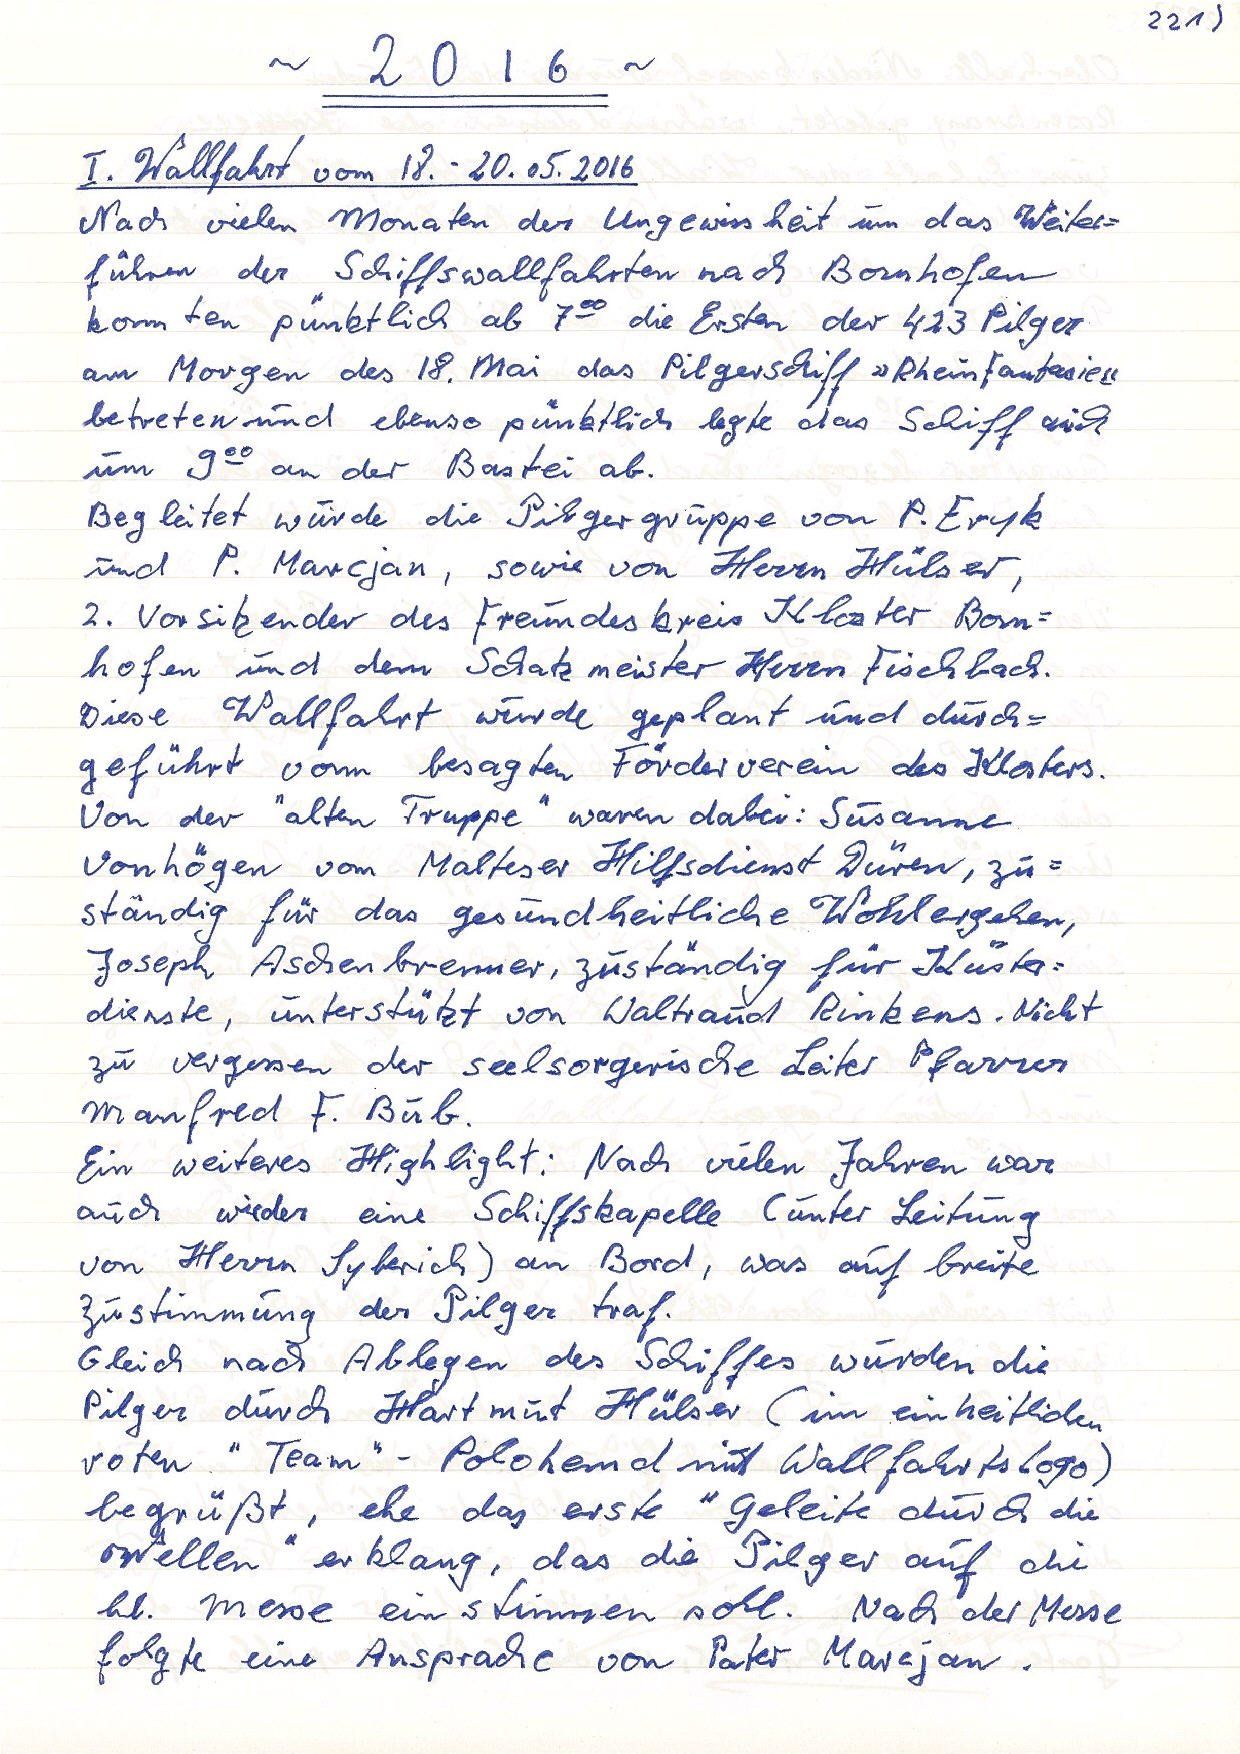 221)
~ 2016 ~
I. Wallfahrt vom 18.-20.05.2016
Nach vielen Monaten der Ungewissheit um das Weiter=
führen der Schiffswallfahrten nach Bornhofen
konnten pünktlich ab 7⁰⁰ die Ersten der 423 Pilger
am Morgen des 18. Mai das Pilgerschiff »RheinFantasie«
betreten und ebenso pünktlich legte das Schiff auch
um 9⁰⁰ an der Bastei ab.
Begleitet wurde die Pilgergruppe von P. Eryk
und P. Marcjan, sowie von Herrn Hülser,
2. Vorsitzender des Freundeskreis Kloster Born=
hofen und dem Schatzmeister Herrn Fischbach.
Diese Wallfahrt wurde geplant und durch=
geführt vom besagten Förderverein des Klosters.
Von der "alten Truppe" waren dabei: Susanne
Vonhögen vom Malteser Hilfsdienst Düren, zu=
ständig für das gesundheitliche Wohlergehen,
Joseph Aschenbrenner, zuständig für Küster=
dienste, unterstützt von Waltraud Rinkens. Nicht
zu vergessen der seelsorgerische Leiter Pfarrer
Manfred F. Bub.
Ein weiteres Highlight: Nach vielen Jahren war
auch wieder eine Schiffskapelle (unter Leitung
von Herrn Syberich) an Bord, was auf breite
Zustimmung der Pilger traf.
Gleich nach Ablegen des Schiffes wurden die
Pilger durch Hartmut Hülser (im einheitlichen
roten "Team"- Polohemd mit Wallfahrtslogo)
begrüßt, ehe das erste "Geleite durch die
Wellen" erklang, das die Pilger auf die
hl. Messe einstimmen soll. Nach der Messe
folgte eine Ansprache von Pater Marcjan.